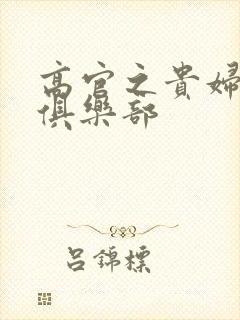 高官之貴婦
俱樂部
吕錦標